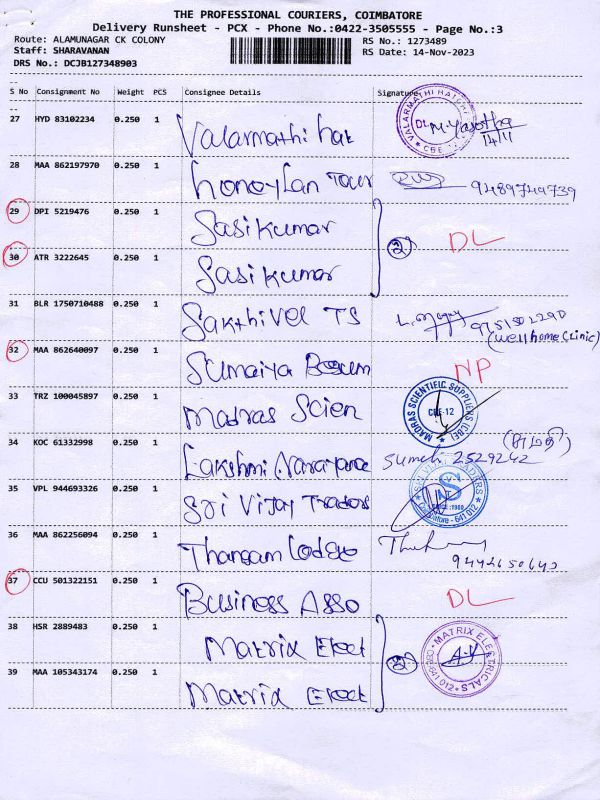 THE PROFESSIONAL COURIERS, COIMBATORE
Delivery Runsheet - PCX - Phone No.:0422-3505555 - Page No.:3
Route: ALAMUNAGAR CK COLONY RS No.: 1273489
Staff: SHARAVANAN RS Date: 14-Nov-2023
DRS No.: DCJB127348903
S No Consignment No Weight PCS Consignee Details Signature
27 HYD 83102234 0.250 1 Valarmathi hat DL M. Yasotha 14/11
28 MAA 862197970 0.250 1 Honeylan Tour 9489749739
29 DPI 5219476 0.250 1 Sasikumar
30 ATR 3222645 0.250 1 Sasikumar 2 DL
31 BLR 1750710488 0.250 1 Sakthivel TS
(Wellhome Clinic)
32 MAA 862640097 0.250 1 Sumaiya NP
33 TRZ 100045897 0.250 1 Madras Scien MADRAS SCIENTIFIC SUPPLIERS (CBE) CBE-12
34 KOC 61332998 0.250 1 Lakshmi Narayana 2529242 (சுமதி)
35 VPL 944693326 0.250 1 Sri Vijay Traders
36 MAA 862256094 0.250 1 Thangam Lodge
37 CCU 501322151 0.250 1 Business Asso DL
38 HSR 2889483 0.250 1 Matrix Elect
39 MAA 105343174 0.250 1 Matrix Elect 2 MATRIX ELECTRICALS